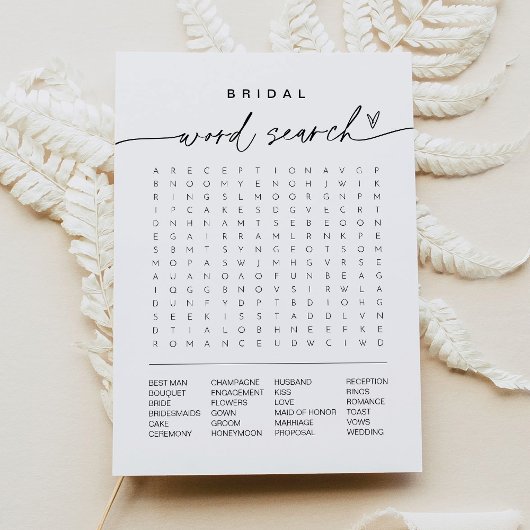 BRIDAL
word search
A R E C E P T I O N A V G P
B N O O M Y E N O H J W I K
R I N G S L M O O R G N P M
I P C A K E S D G V E C R T
D N H N A M T S E B E O O N
E G A I R R A M L R N K P E
S B M T S Y N G E O T S O M
M O P A S W J M H G V R S E
A U A N O A O F U N B E A G
I Q G G B N O V S I R W L A
D U N F Y D P T B D I O H G
S E E K I S S T A D D L V N
D T I A L O B H N E E F K E
R O M A N C E U D W C I W D
BEST MAN CHAMPAGNE HUSBAND RECEPTION
BOUQUET ENGAGEMENT KISS RINGS
BRIDE FLOWERS LOVE ROMANCE
BRIDESMAIDS GOWN MAID OF HONOR TOAST
CAKE GROOM MARRIAGE VOWS
CEREMONY HONEYMOON PROPOSAL WEDDING